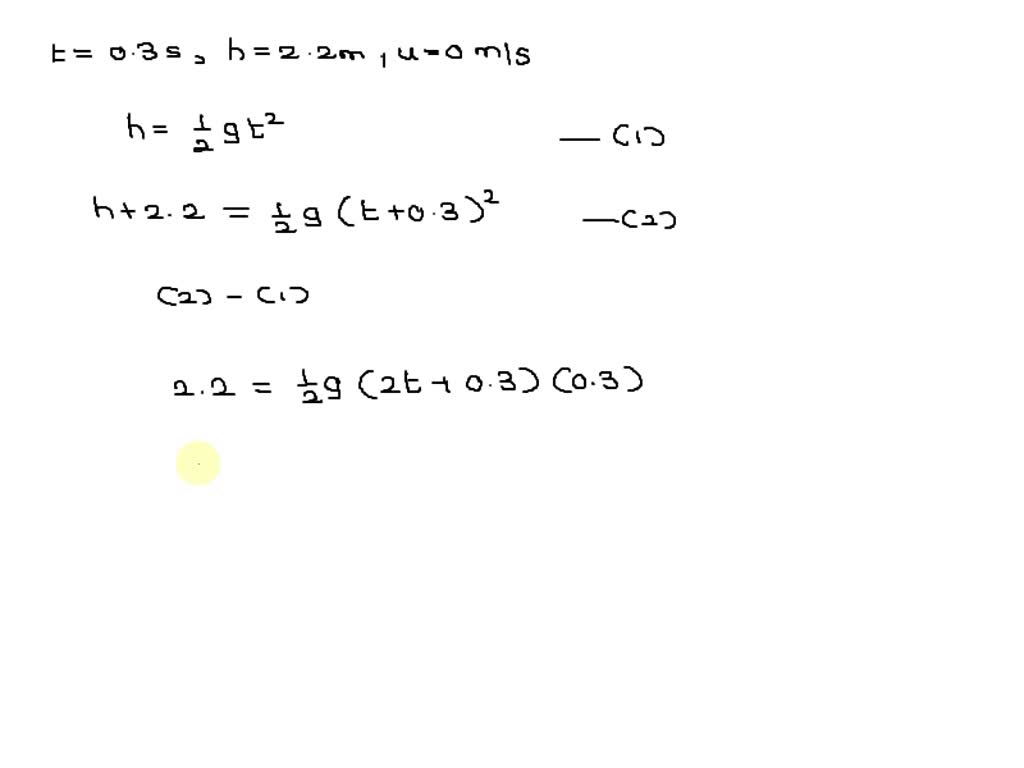 t = 0.3 s, h = 2.2m, u = 0 m/s
h = 1/2 g t² — (1)
h + 2.2 = 1/2 g (t + 0.3)² — (2)
(2) - (1)
2.2 = 1/2 g (2t + 0.3) (0.3)